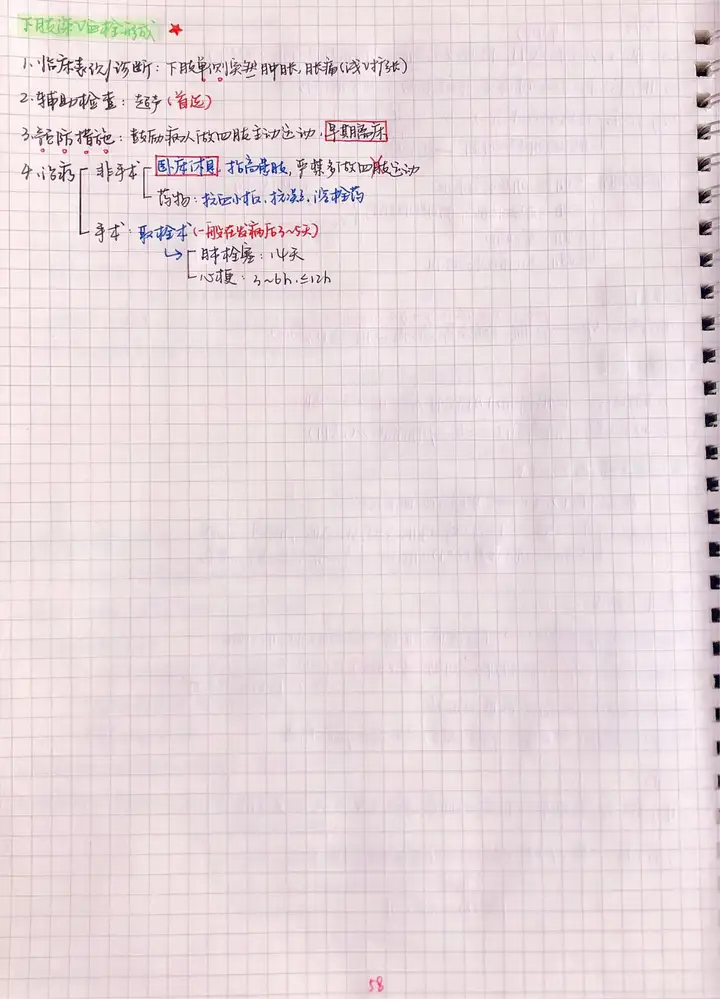 下肢深V血栓形成 ★
1.临床表现/诊断：下肢单侧突然肿胀，胀痛(浅V扩张)
2.辅助检查：超声(首选)
3.预防措施：鼓励病人做四肢主动运动，早期离床
4.治疗 非手术 卧床休息，抬高患肢，严禁多做四肢运动
药物：抗血小板、抗凝、溶栓药
手术：取栓术(一般在发病后3~5天)
肺栓塞：14天
心梗：3~6h，≤12h
58